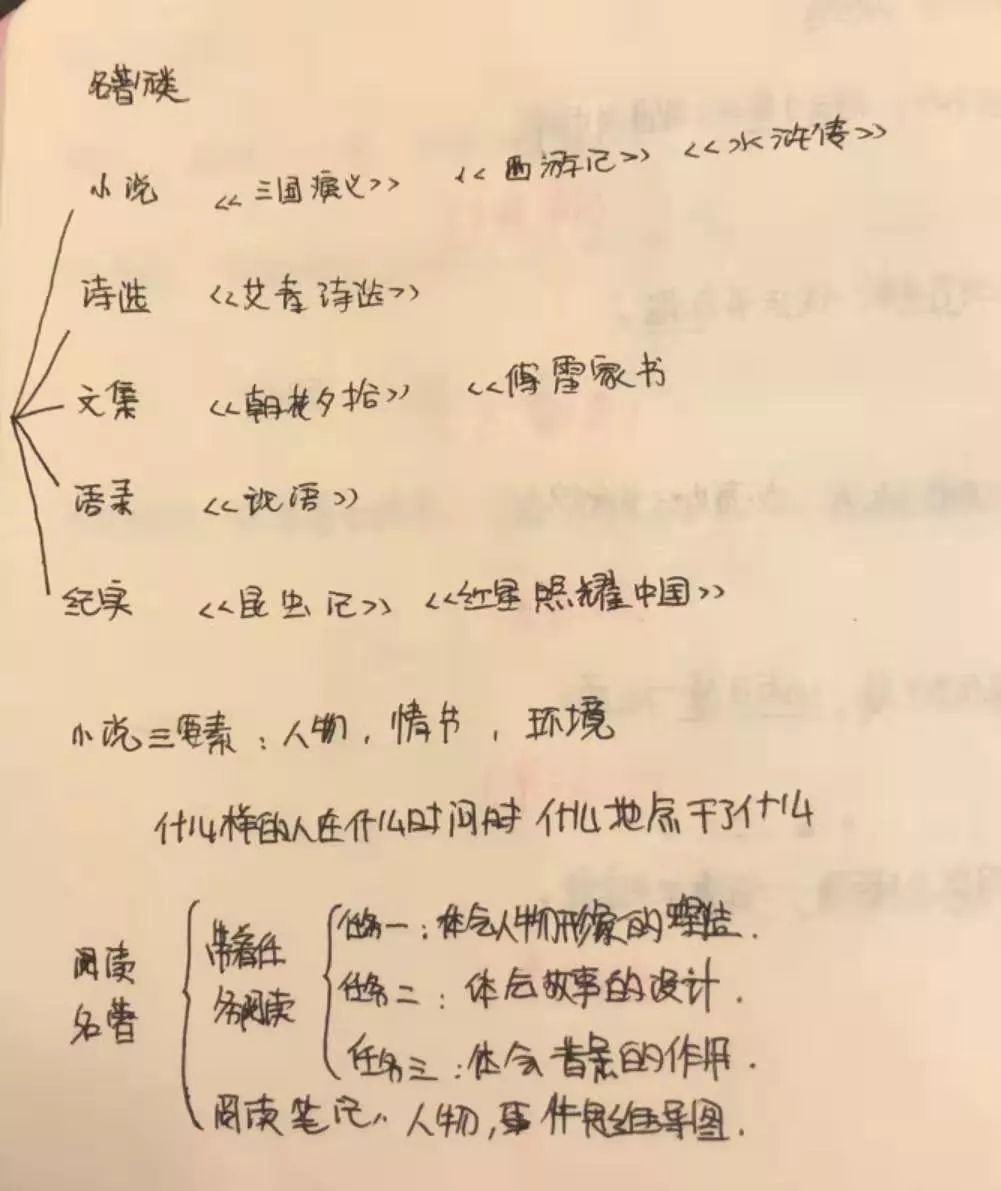 名著分类
小说 <<三国演义>> <<西游记>> <<水浒传>>
诗选 <<艾青诗选>>
文集 <<朝花夕拾>> <<傅雷家书
语录 <<论语>>
纪实 <<昆虫记>> <<红星照耀中国>>
小说三要素：人物，情节，环境
什么样的人在什么时间时 什么地点干了什么
阅读名著
带着任务阅读
任务一：体会人物形象的塑造.
任务二：体会故事的设计.
任务三：体会背景的作用.
阅读笔记：人物，事件思维导图.